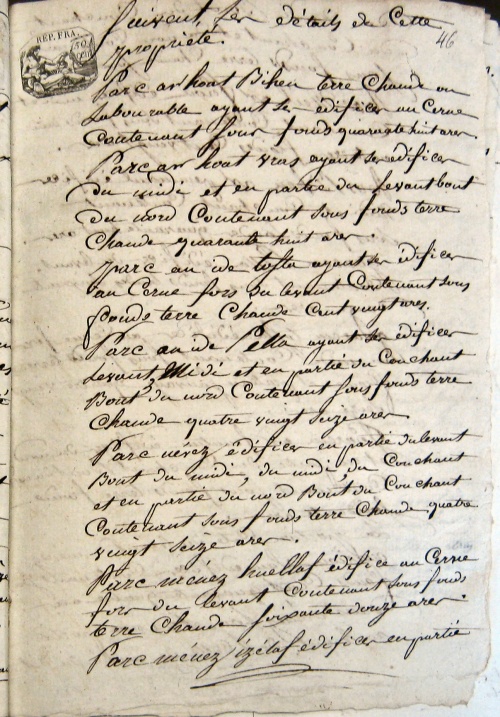 Suivent, les détails de Cette
46
REP. FRA.
propriété.
Parc ar hoat Bihen terre Chaude ou
Labourable ayant ses édifices au Cerne
Contenant sous fonds quarante huit ares.
Parc ar hoat vras ayant ses édifices
du midi et en partie du levant bout
du nord Contenant sous fonds terre
Chaude quarante huit ares.
parc an ide tosta ayant ses édifices
au Cerne fors du levant Contenant sous
fonds terre Chaude Cent vingt ares.
Parc an ide Pella ayant ses édifices
levant, Midi et en partie du Couchant
Bout du nord Contenant sous fonds terre
Chaude quatre vingt seize ares.
Parc névez édifices en partie du levant
Bout du midi, du midi, du Couchant
et en partie du nord Bout du Couchant
Contenant sous fonds terre Chaude quatre
vingt seize ares.
Parc ménez huellaf édifice au Cerne
fors du levant Contenant sous fonds
terre Chaude soixante douze ares.
Parc ménez izélaf édifices en partie